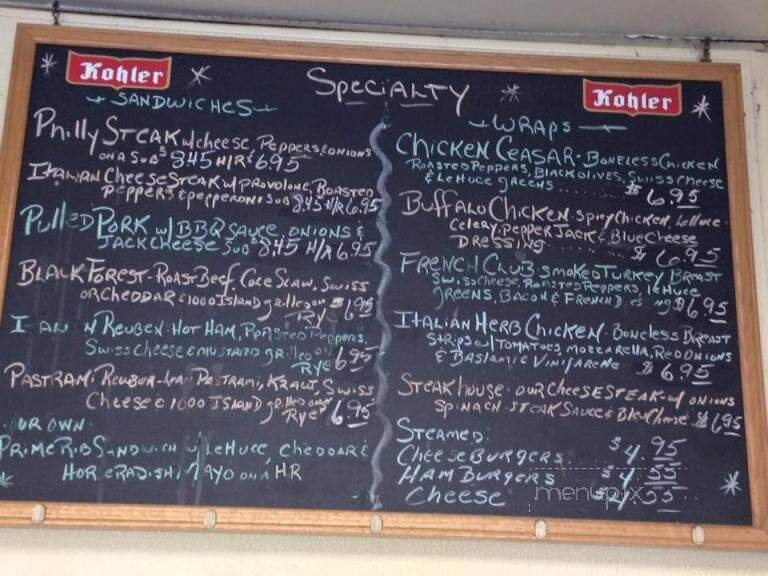 Kohler
Specialty
Kohler
SANDWICHES
Philly STEAK w/cheese, Peppers & onions
ON A SUB $8.45 H/R $6.95
ITALIAN CHEESE STEAK w/ PROVOLONE, ROASTED
PEPPERS & PEPPERONI SUB 8.45 H/R 6.95
Pulled PORK w/ BBQ SAUCE, ONIONS &
JACK CHEESE SUB $8.45 H/R 6.95
BLACK FOREST - ROAST BEEF, COLE SLAW, SWISS
OR CHEDDAR & 1000 ISLAND grilled on
Rye 6.95
I AN N REUBEN - HOT HAM, ROASTED PEPPERS,
SWISS CHEESE & MUSTARD gRilled ON
RYE 6.95
PASTRAMI REUBEN - Lean PASTRAMI, KRAUT, SWISS
CHEESE & 1000 ISLAND gRilled ON
Rye 6.95
OUR OWN
PRIME RIB SANDWICH w/ LeHuce, CHEDDAR &
HORSERADISH MAYO ON A HR
WRAPS
CHICKEN CEASAR - BONELESS CHICKEN
ROASTED PEPPERS, BLACK OLIVES, SWISS CHEESE
& LeHuce GREENS ........ $6.95
BUFFALO CHICKEN - SPICY CHICKEN, LeHuce -
CELERY, PEPPER JACK & BLUE CHEESE
DRESSING ........ $6.95
FRENCH CLUB SMOKED TURKEY BREAST
SWISS CHEESE, ROASTED PEPPERS, LeHuce
GREENS, BACON & FRENCH D es ng $6.95
ITALIAN HERB CHICKEN - BONELESS BREAST
STRIPS w/ TOMATOES, MOZZARELLA, RED ONIONS
& BASLAMIC VINIGARENE $6.95
STEAKHOUSE - OUR CHEESE STEAK w/ ONIONS
SPINACH STEAK SAUCE & Bleu Cheese $6.95
STEAMED:
CHEESE BURGERS $4.95
HAM BURGERS $4.55
CHEESE $2.55
menupix